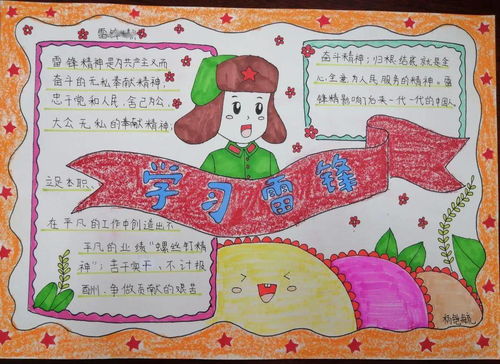 雷锋精神
雷锋精神是为共产主义而
奋斗的无私奉献精神;
忠于党和人民、舍己为公、
大公无私的奉献精神;
立足本职、
在平凡的工作中创造出不
平凡的业绩“螺丝钉精
神”;苦干实干、不计报
酬、争做贡献的艰苦
奋斗精神;归根结底就是全
心全意为人民服务的精神。雷
锋精神影响了后来一代一代的中国人
学习雷锋